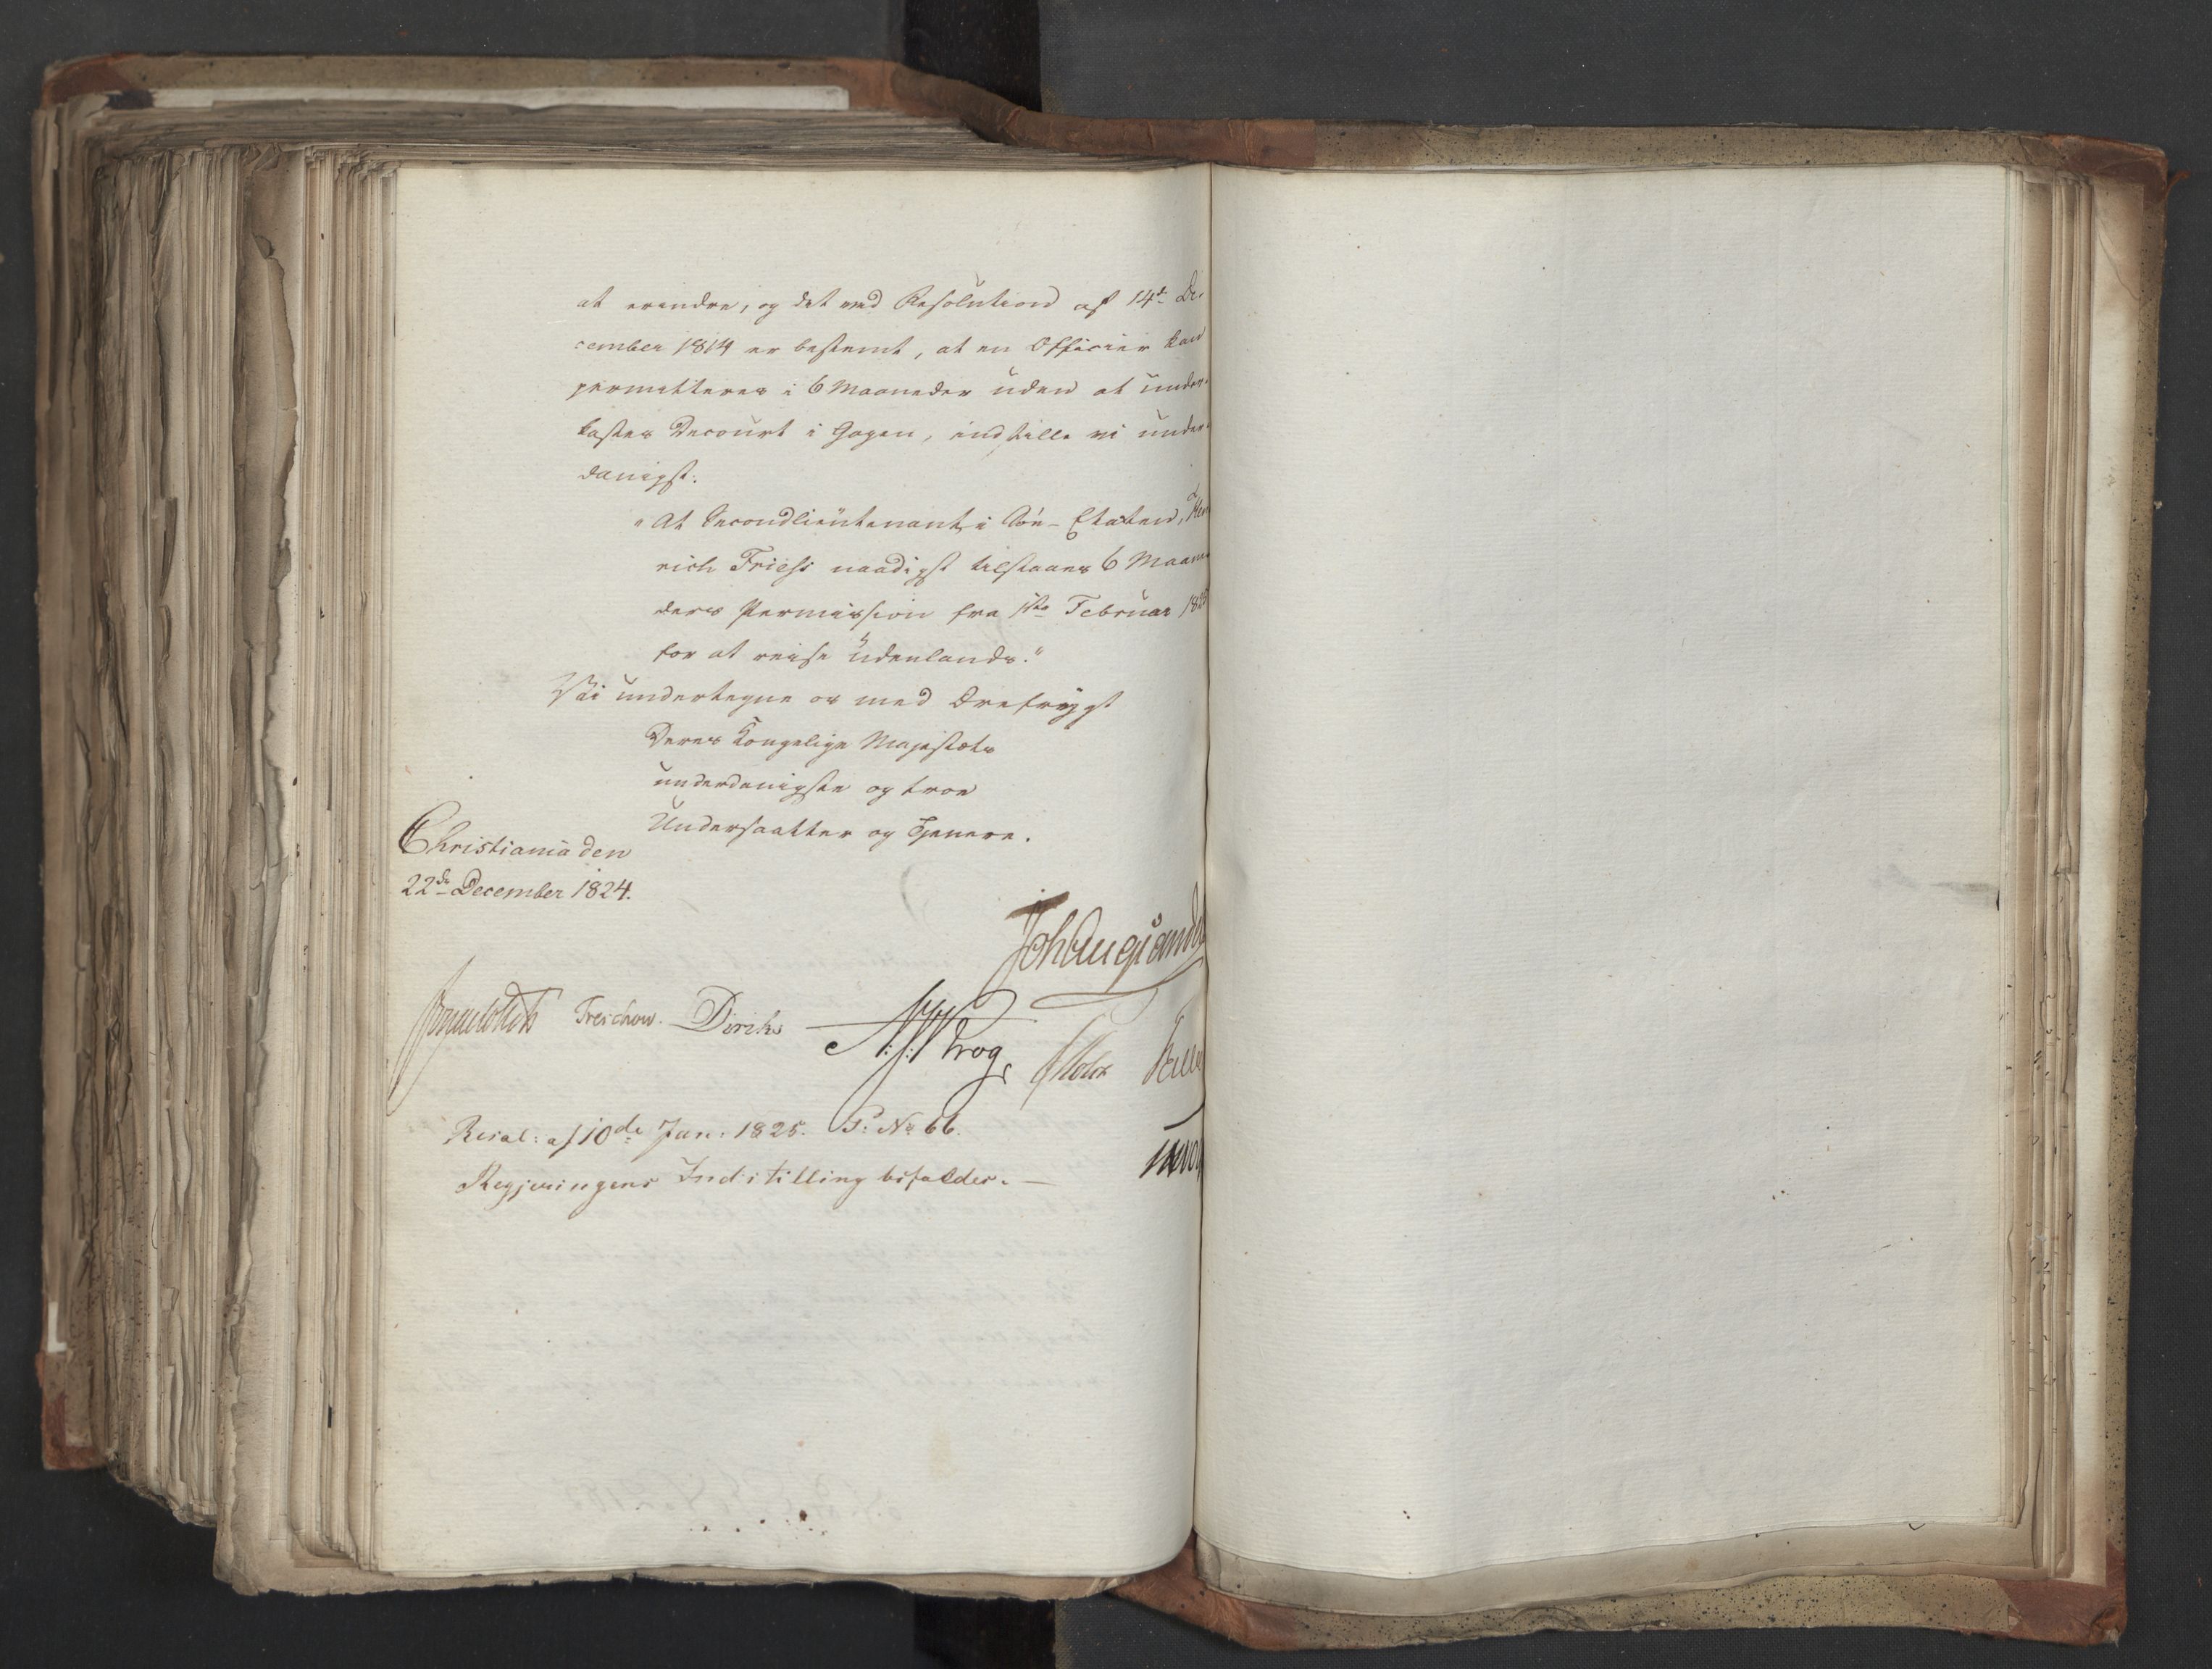 at erindre, og det ved Resolution af 14de De-
cember 1814 er bestemt, at en Officier kan
permitteres i 6 Maaneder uden at under-
kastes Decourt i Gagen, indstille vi under-
danigst:
"At Secondlieutenant i Søe-Etaten, Hen
rich Friess naadigst tilstaaes 6 Maane-
ders Permission fra 1ste Februar 1825
for at reise udenlands."
Vi undertegne os med Ærefrygt
Deres Kongelige Majestæts
underdanigste og troe
Undersaatter og Tjenere.
Christiania den
22de December 1824.
Joh Aug Sande
Collett Treschow. Diriks Krog
Resol: af 10de Jan: 1825. S: No 66.
Regjeringens Indstilling bifaldes. —